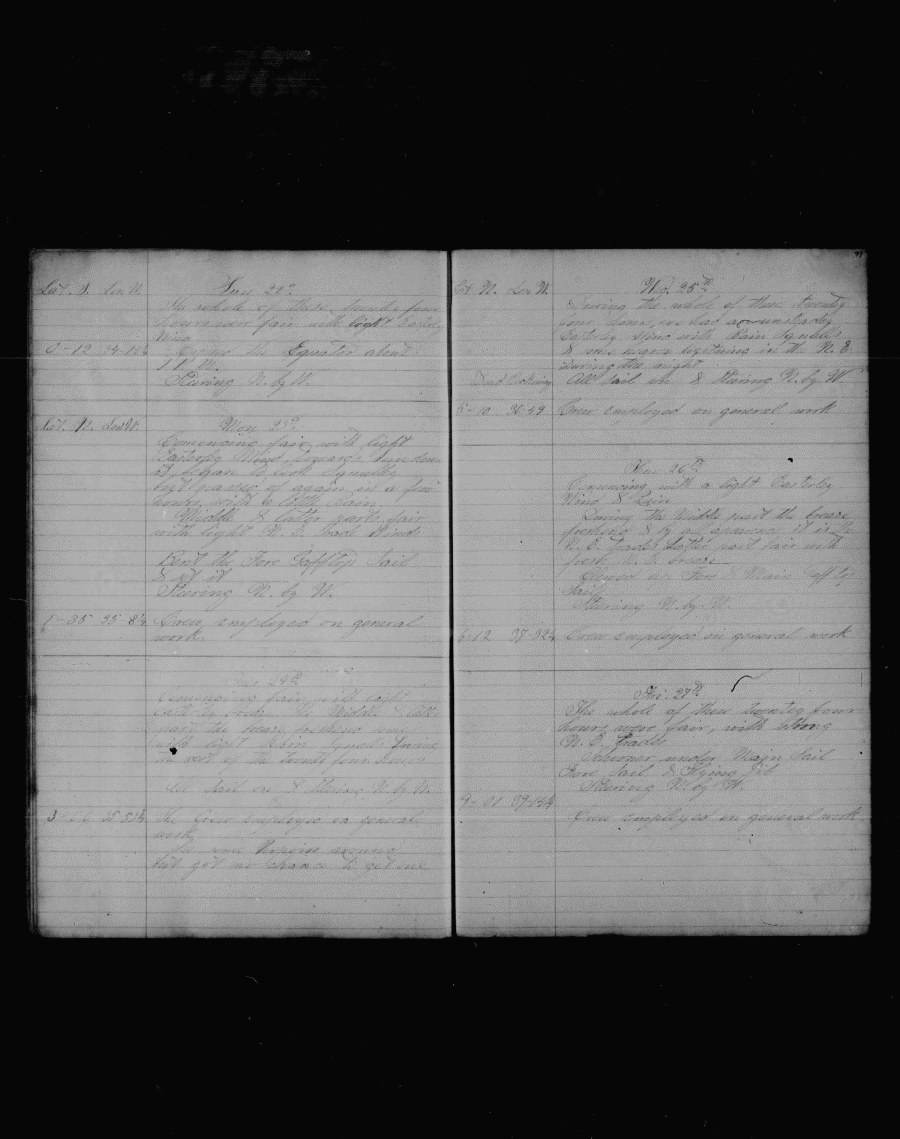 Lat. S. Lon W. Sun 22nd
The whole of these twenty four
hours were fair with light Easterly
Wind
0-12 34-
Crossed the Equator about
P.M.
Steering N. by W.
Lat. N. Lon W. Mon 23rd
Comencing fair with light
Easterly Wind, towards sundown
it began to look Squally
but passed of again in a few
hours with a little rain
Middle & Latter parts fair
with light N. E. Trade Winds
Bent the Fore Gafftop Sail
& set it
Steering N. by W.
1-35 35-
Crew employed on general
work
24th
Comencing fair with light
Easterly Wind the Middle & Latter
part the
with light Rain Squals During
the rest of the twenty four hours
All Sail on & Steering N. by W.
3 35-
The Crew employed on general
work
but got no chance to get one
Lat N. Lon W. Wed. 25th
During the whole of these twenty
four hours, we had an unsteady
Easterly Wind with Rain Squals
& some heavy lightning in the N. E.
During the night
All Sail on & Steering N. by W.
Dead Reckoning
5-10 36-49 Crew employed on general work
Thur 26th
Comencing with a light Easterly
Wind & Rain
During the Middle part the breeze
freshening & by all aperence it is the
N. E. Trades Latter part fair with
fresh N. E. breeze
Fore & Main Gafftop
Sails
Steering N. by W.
6-12 37- Crew employed on general work
Fri. 27th
The whole of these twenty four
hours were fair, with strong
N. E. Trades
Schooner under Main Sail
Fore Sail & Flying Jib
Steering N. by W.
9-01 39-
Crew employed on general work